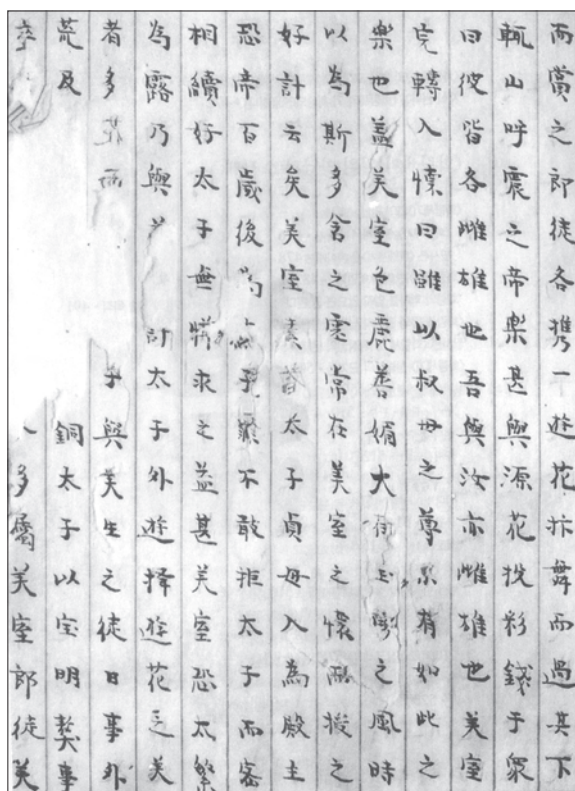 而賞之郎徒各携一遊花抃舞而過其下
輒山呼震之帝樂甚與源花投彩錢于衆
曰彼皆各雌雄也吾與汝亦雌雄也美室
宛轉入懷曰雖以叔母之尊有如此之
樂也盖美室色麗善媚大玉之風時
以為斯多含之常在美室之懷而援之
好計云矣美室太子貞母入為殿主
恐帝百歲後為不敢拒太子而密
相續好太子無憚求之益甚美室恐太繁
為露乃與計太子外遊擇遊花之美
者多與美生之徒日事外
荒及銅太子以宝明事
多属美室郎徒美